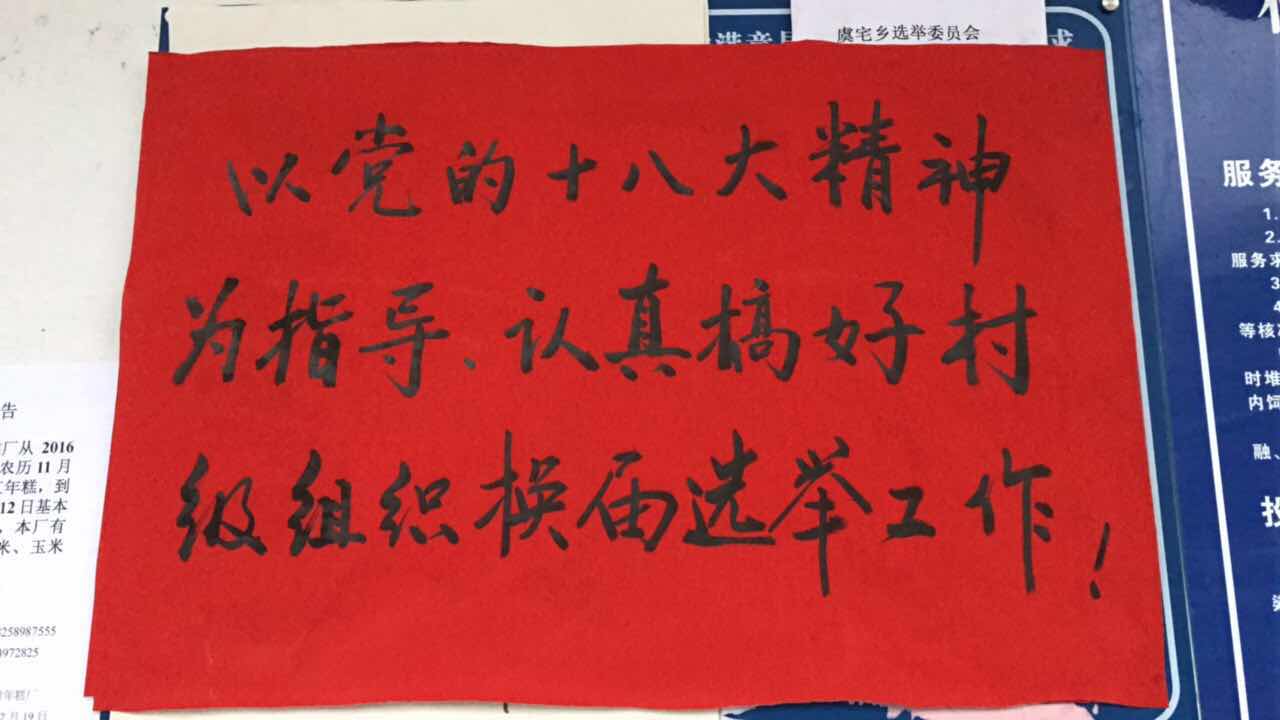 虞宅乡选举委员会
以党的十八大精神
为指导、认真搞好村
级组织换届选举工作！
告
厂从 2016
农历 11 月
年糕，到
12日基本
，本厂有
米、玉米
3258987555
972825
年糕厂
2月19日
服务
1.
2.
服务
3
等核
时堆
内饲
融、